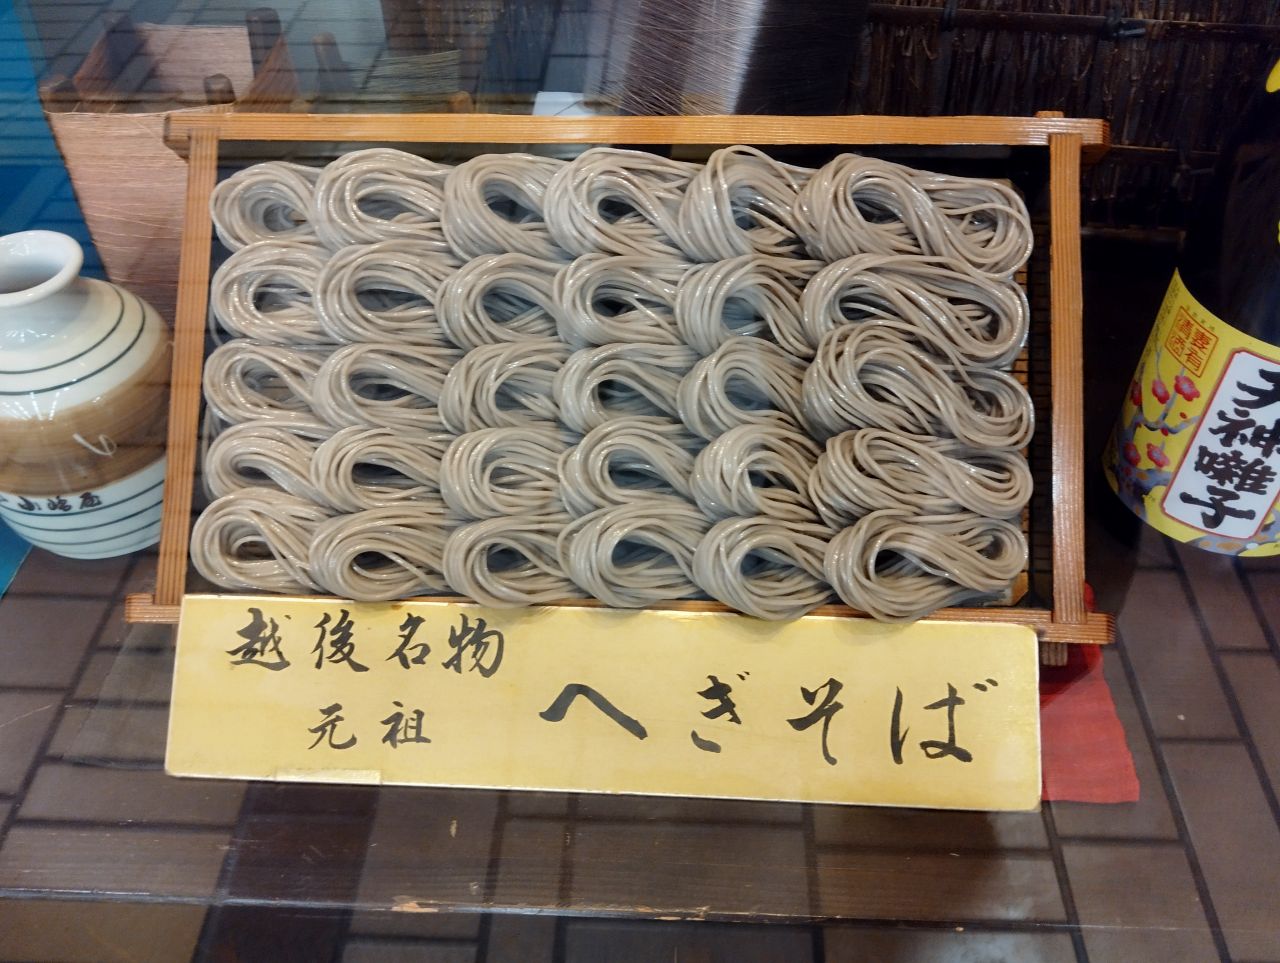 越後名物
元祖
へぎそば
天神囃子
小嶋屋